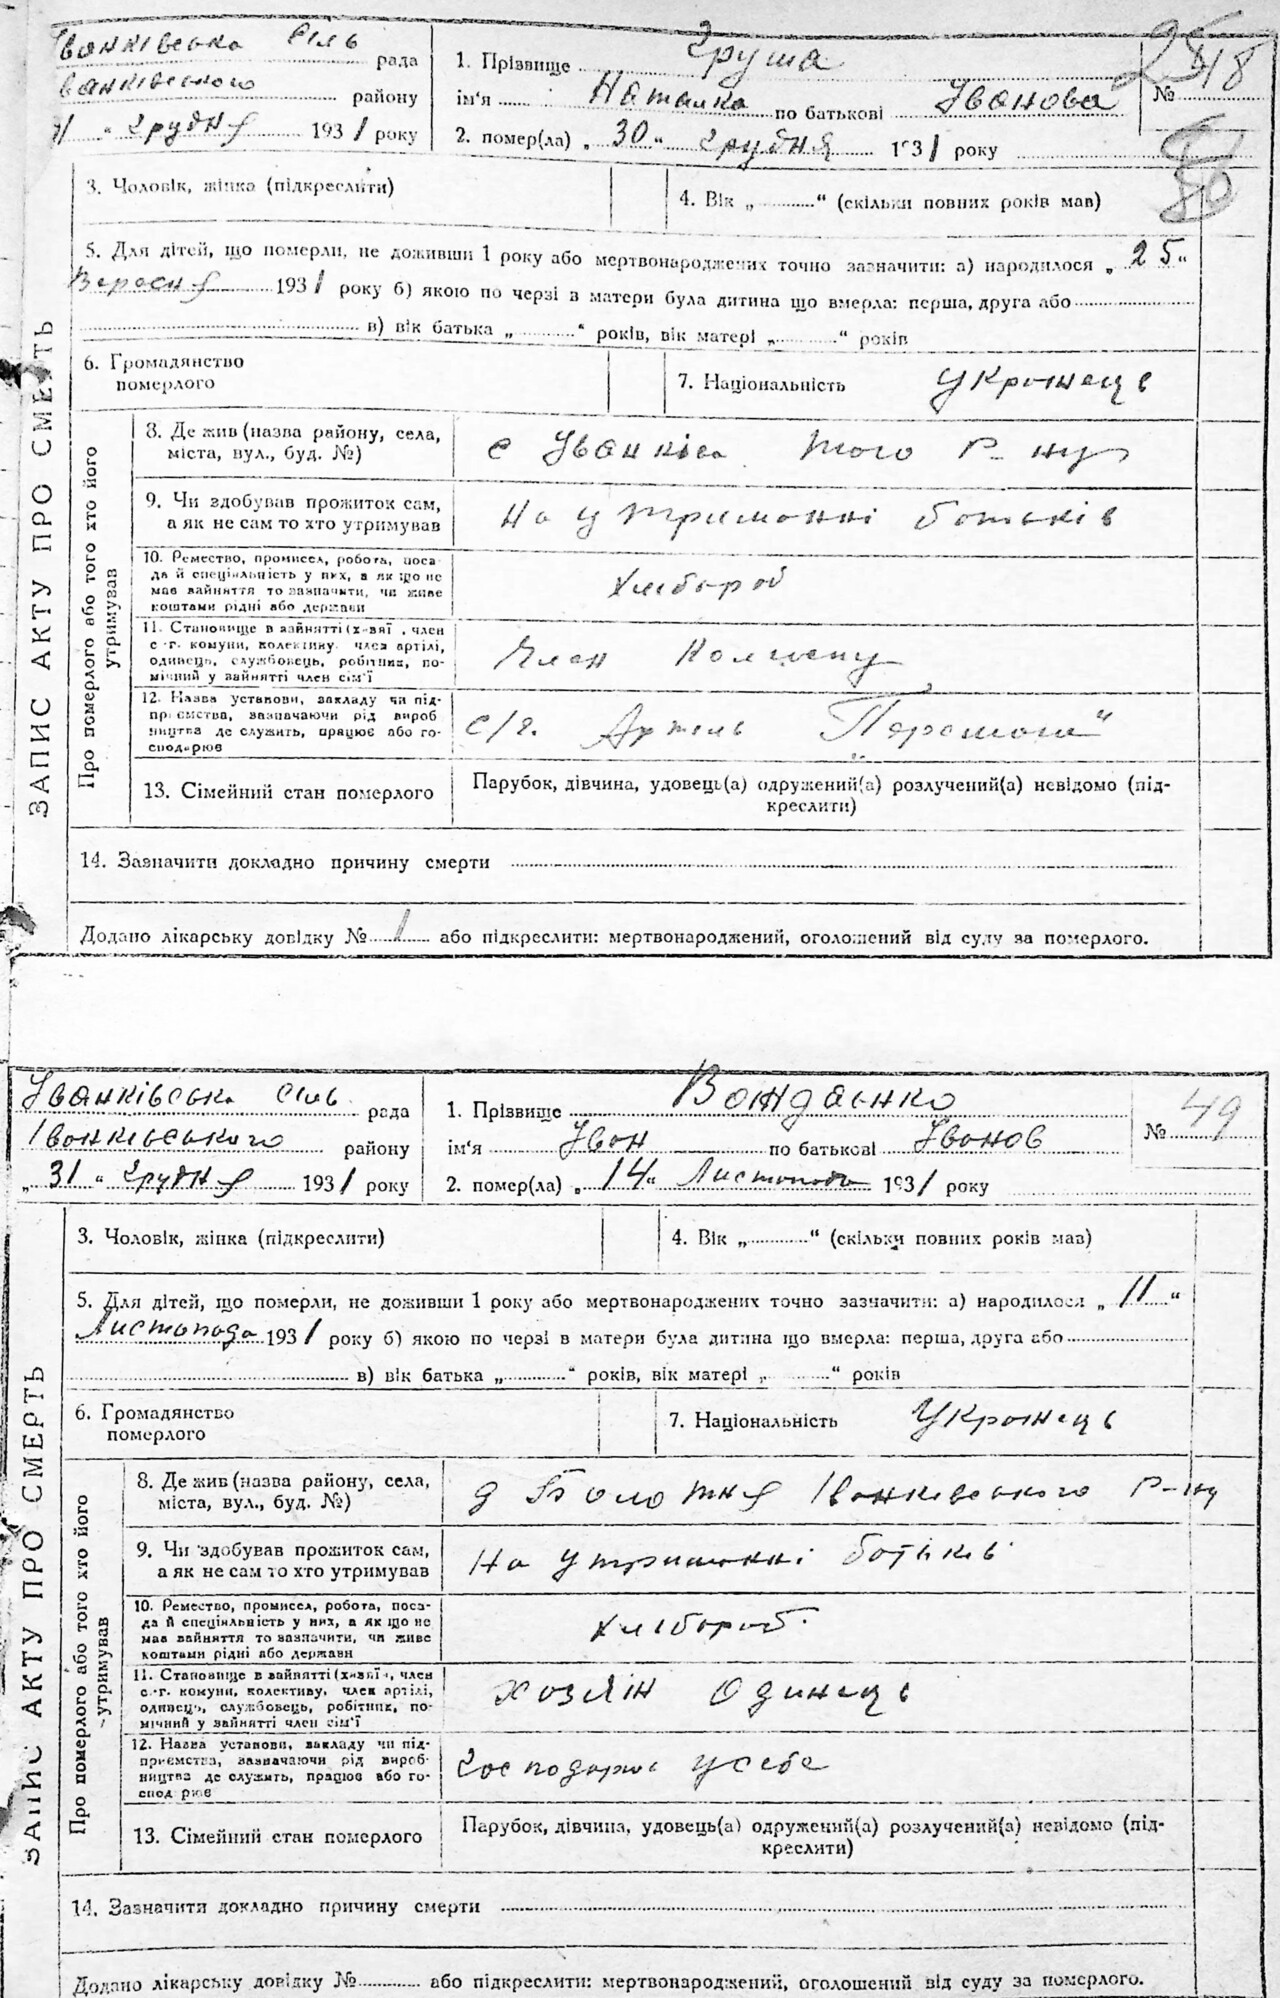 Іванківська Сіль рада
Іванківського району
31 " Грудня 1931 року
1. Прізвище Груша
ім'я Наталка по батькові Іванова
2. помер(ла) „ 30 " Грудня 1931 року
№ 48
3. Чоловік, жінка (підкреслити)
4. Вік „ " (скільки повних років мав)
5. Для дітей, що померли, не доживши 1 року або мертвонароджених точно зазначити: а) народилося „ 25 "
Вересня 1931 року б) якою по черзі в матери була дитина що вмерла: перша, друга або
в) вік батька „ " років, вік матері „ " років
6. Громадянство
померлого
7. Національність Украінець
ЗАПИС АКТУ ПРО СМЕРТЬ
Про померлого або того хто його
утримував
8. Де жив (назва району, села,
міста, вул., буд. №)
с Іванків того р-ну
9. Чи здобував прожиток сам,
а як не сам то хто утримував
На утриманні батьків
10. Ремество, промисел, робота, поса-
да й спеціяльність у них, а як що не
мав зайняття то зазначити, чи живе
коштами рідні або держави
Хлібороб
11. Становище в зайнятті (х-зяї , член
с.-г. комуни, колективу, член артілі,
одинець, службовець, робітник, по-
мічний у зайнятті член сім'ї
Член Колгоспу
12. Назва установи, закладу чи під-
приємства, зазначаючи рід вироб
ництва де служить, працює або го-
сподарює
с/г. Артель „Перемога"
13. Сімейний стан померлого
Парубок, дівчина, удовець(а) одружений(а) розлучений(а) невідомо (під-
креслити)
14. Зазначити докладно причину смерти
Додано лікарську довідку № 1 або підкреслити: мертвонароджений, оголошений від суду за померлого.
Іванківська Сіль рада
Іванківського району
„ 31 " Грудня 1931 року
1. Прізвище
ім'я Іван по батькові Іванов
2. помер(ла) „ 14 " Листопада 1931 року
№ 49
3. Чоловік, жінка (підкреслити)
4. Вік „ " (скільки повних років мав)
5. Для дітей, що померли, не доживши 1 року або мертвонароджених точно зазначити: а) народилося „ 11 "
Листопада 1931 року б) якою по черзі в матери була дитина що вмерла: перша, друга або
в) вік батька „ " років, вік матері „ " років
6. Громадянство
померлого
7. Національність Украінець
ЗАПИС АКТУ ПРО СМЕРТЬ
Про померлого або того хто його
утримував
8. Де жив (назва району, села,
міста, вул., буд. №)
д Болотня Іванківського р-ну
9. Чи здобував прожиток сам,
а як не сам то хто утримував
На утриманні батьків
10. Ремество, промисел, робота, поса-
да й спеціяльність у них, а як що не
мав зайняття то зазначити, чи живе
коштами рідні або держави
Хлібороб
11. Становище в зайнятті (х-зяї , член
с.-г. комуни, колективу, член артілі,
одинець, службовець, робітник, по-
мічний у зайнятті член сім'ї
Хозяін Одинець
12. Назва установи, закладу чи під-
приємства, зазначаючи рід вироб-
ництва де служить, працює або го-
сподарює
Господарює у себе
13. Сімейний стан померлого
Парубок, дівчина, удовець(а) одружений(а) розлучений(а) невідомо (під-
креслити)
14. Зазначити докладно причину смерти
Додано лікарську довідку № або підкреслити: мертвонароджений, оголошений від суду за померлого.